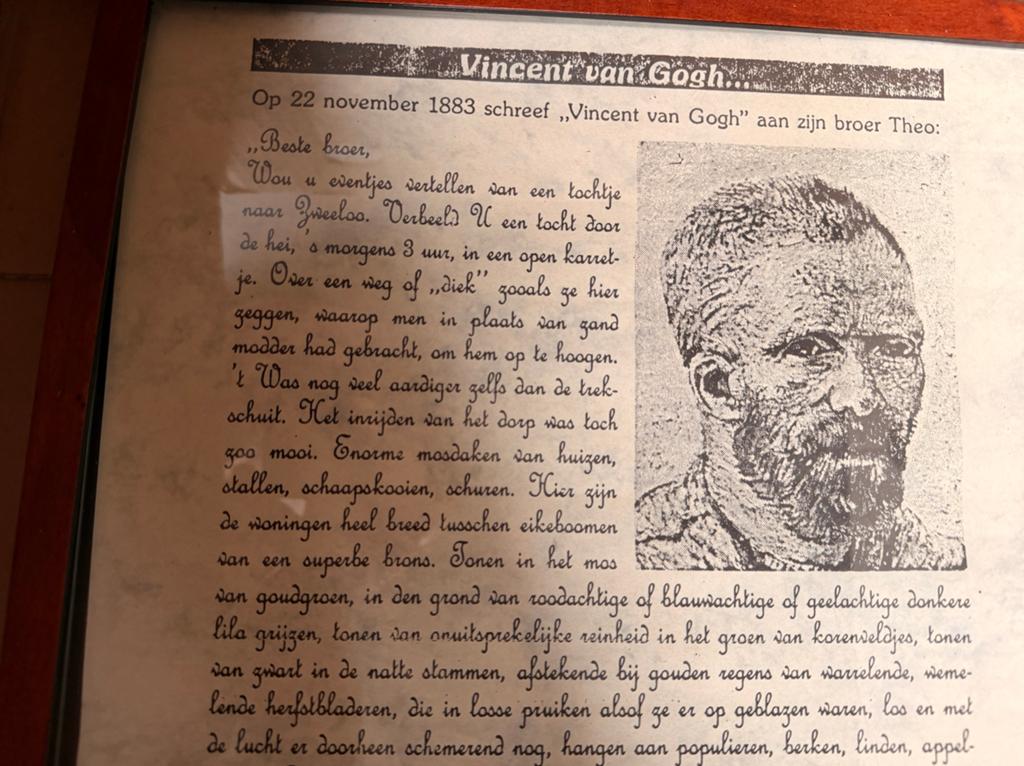 Vincent van Gogh...
Op 22 november 1883 schreef „Vincent van Gogh” aan zijn broer Theo:
„Beste broer,
Wou u eventjes vertellen van een tochtje
naar Zweeloo. Verbeeld U een tocht door
de hei, 's morgens 3 uur, in een open karret-
je. Over een weg of „diek” zooals ze hier
zeggen, waarop men in plaats van zand
modder had gebracht, om hem op te hoogen.
't Was nog veel aardiger zelfs dan de trek-
schuit. Het inrijden van het dorp was toch
zoo mooi. Enorme mosdaken van huizen,
stallen, schaapskooien, schuren. Hier zijn
de woningen heel breed tusschen eikeboomen
van een superbe brons. Tonen in het mos
van goudgroen, in den grond van roodachtige of blauwachtige of geelachtige donkere
lila grijzen, tonen van onuitsprekelijke reinheid in het groen van korenveldjes, tonen
van zwart in de natte stammen, afstekende bij gouden regens van warrelende, weme-
lende herfstbladeren, die in losse pruiken alsof ze er op geblazen waren, los en met
de lucht er doorheen schemerend nog, hangen aan populieren, berken, linden, appel-